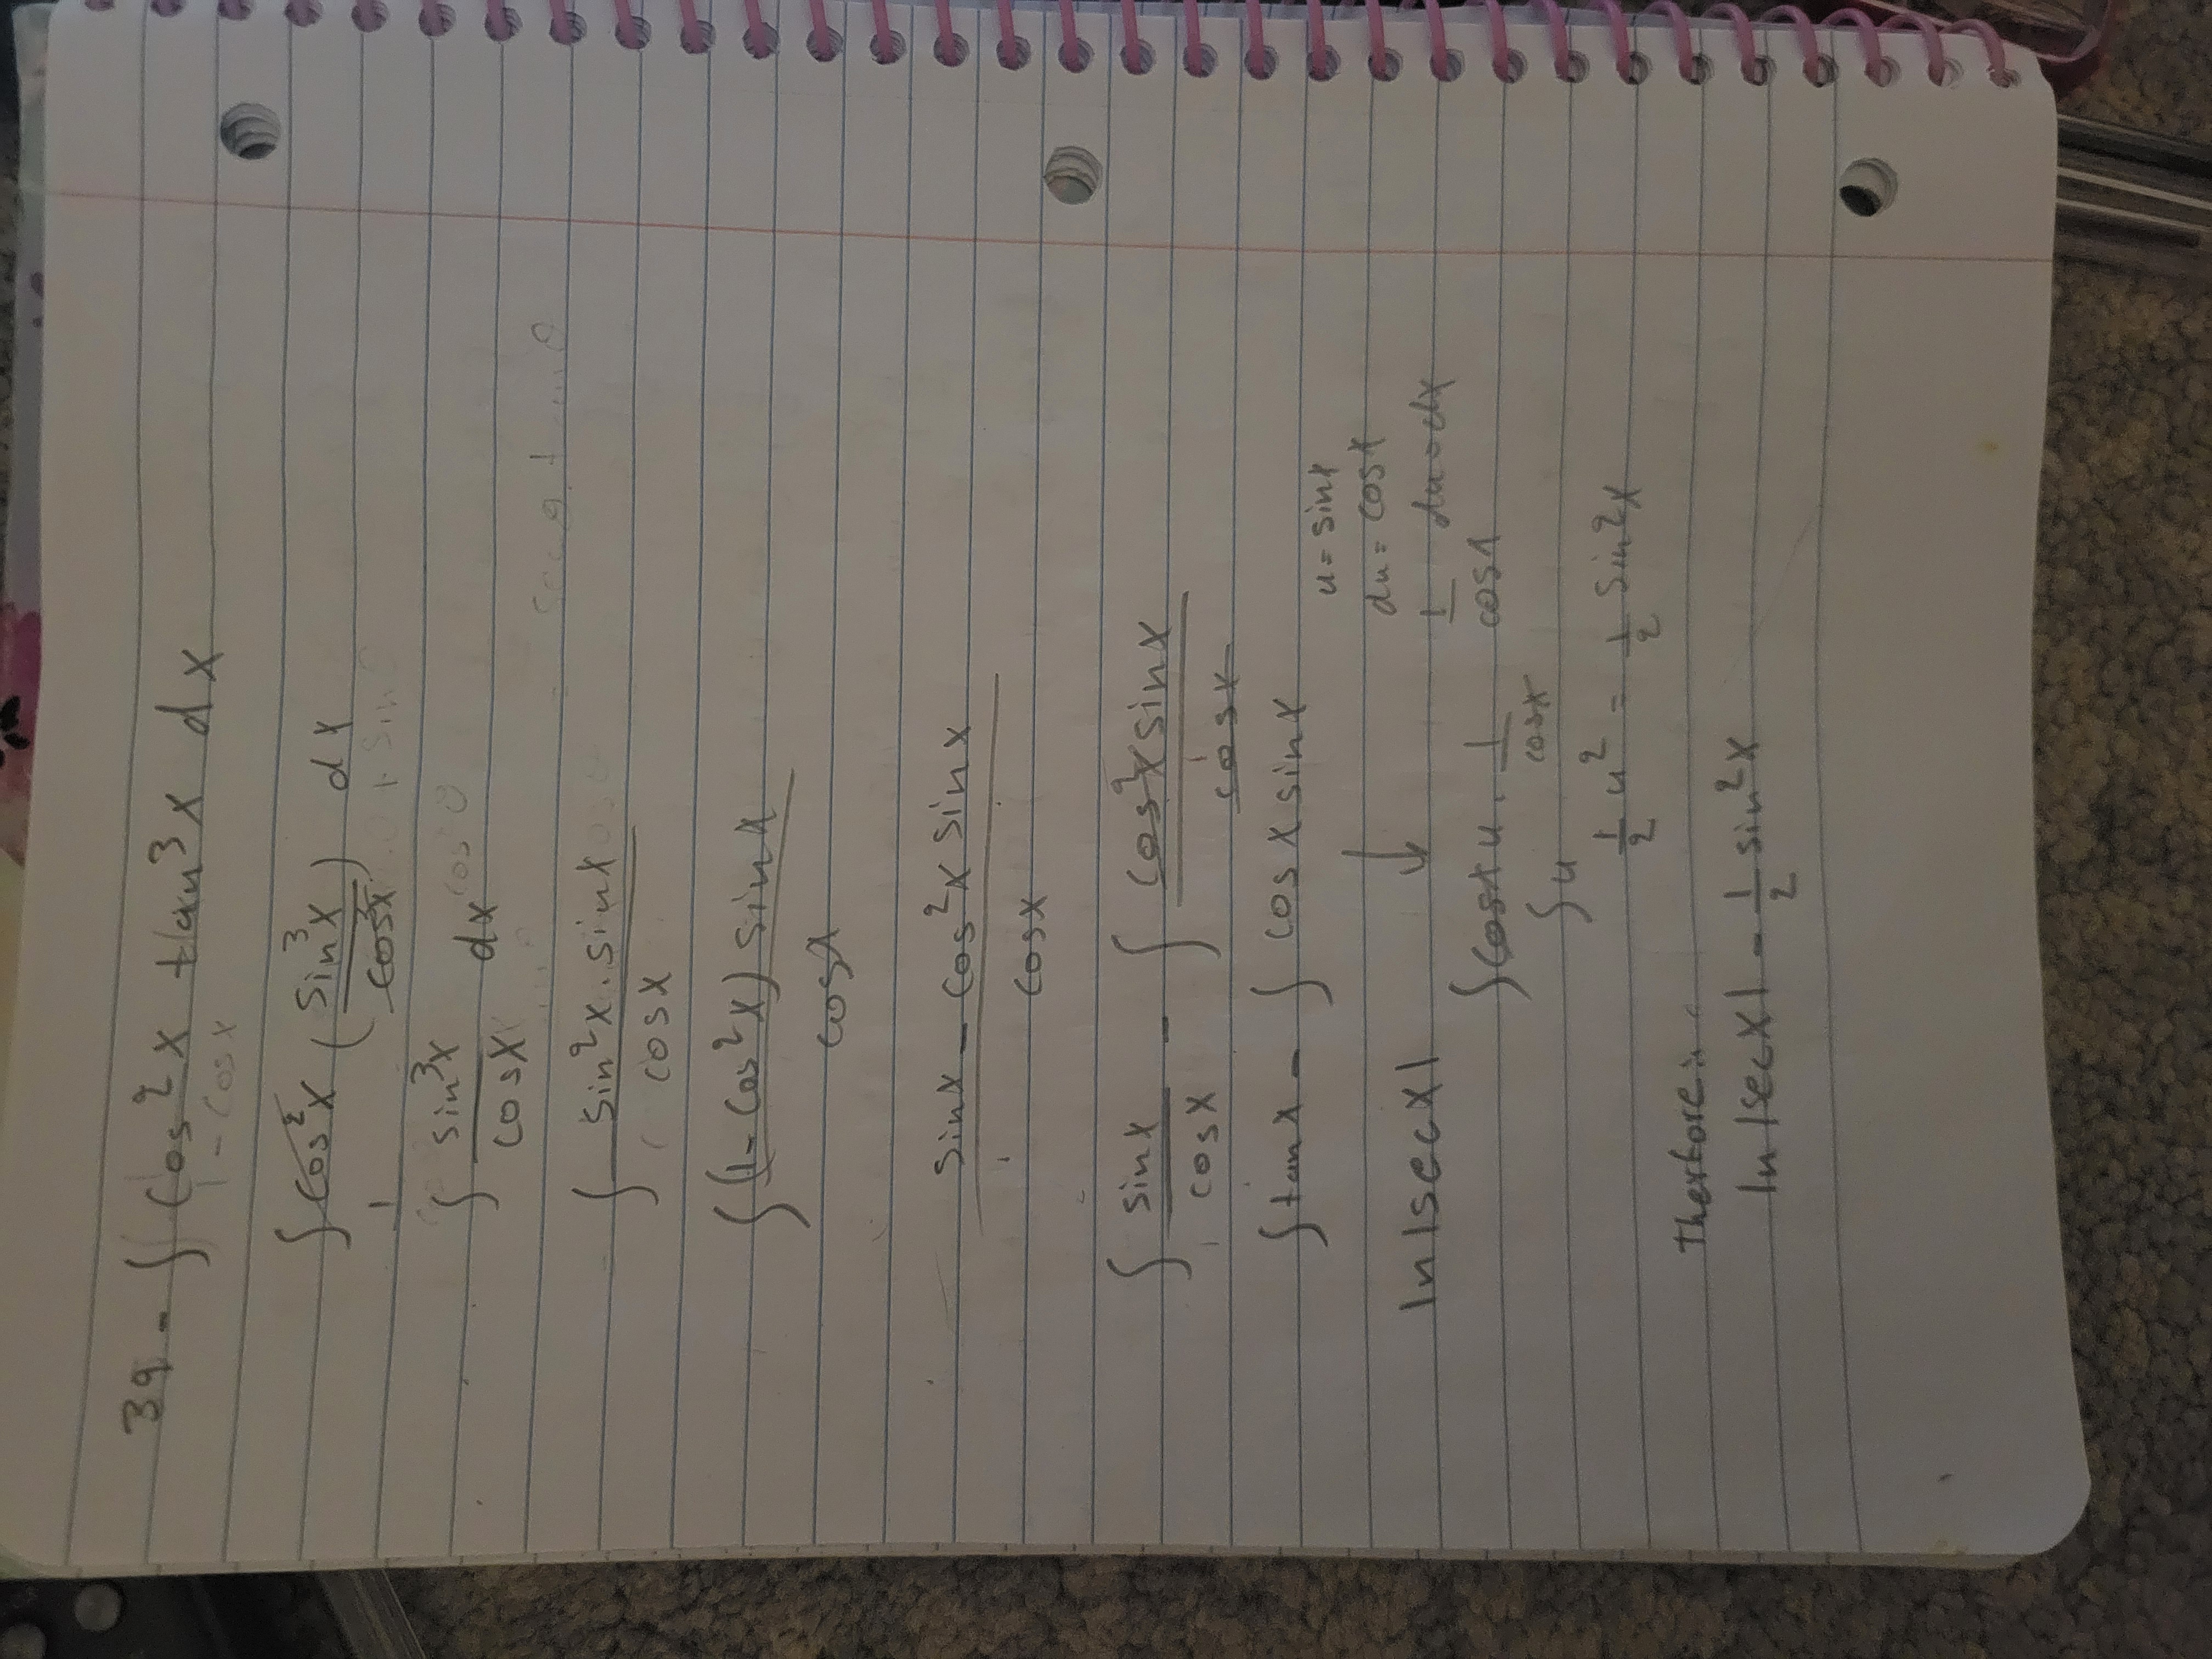 39 - ∫ cos²x tan³x dx
1 - cosx
∫ cos²x (sin³x / cos³x) dx
1
∫ sin³x / cosx dx
∫ sin²x . sinx / cosx
∫ (1 - cos²x) sinx / cosx
sinx - cos²x sinx / cosx
∫ sinx / cosx - ∫ cos²x sinx / cosx
∫ tanx - ∫ cosx sinx
u = sinx
du = cosx
1/cosx du = dx
ln|secx|
∫ cosx u . 1/cosx
∫ u
1/2 u² = 1/2 sin²x
Therfore:
ln|secx| - 1/2 sin²x